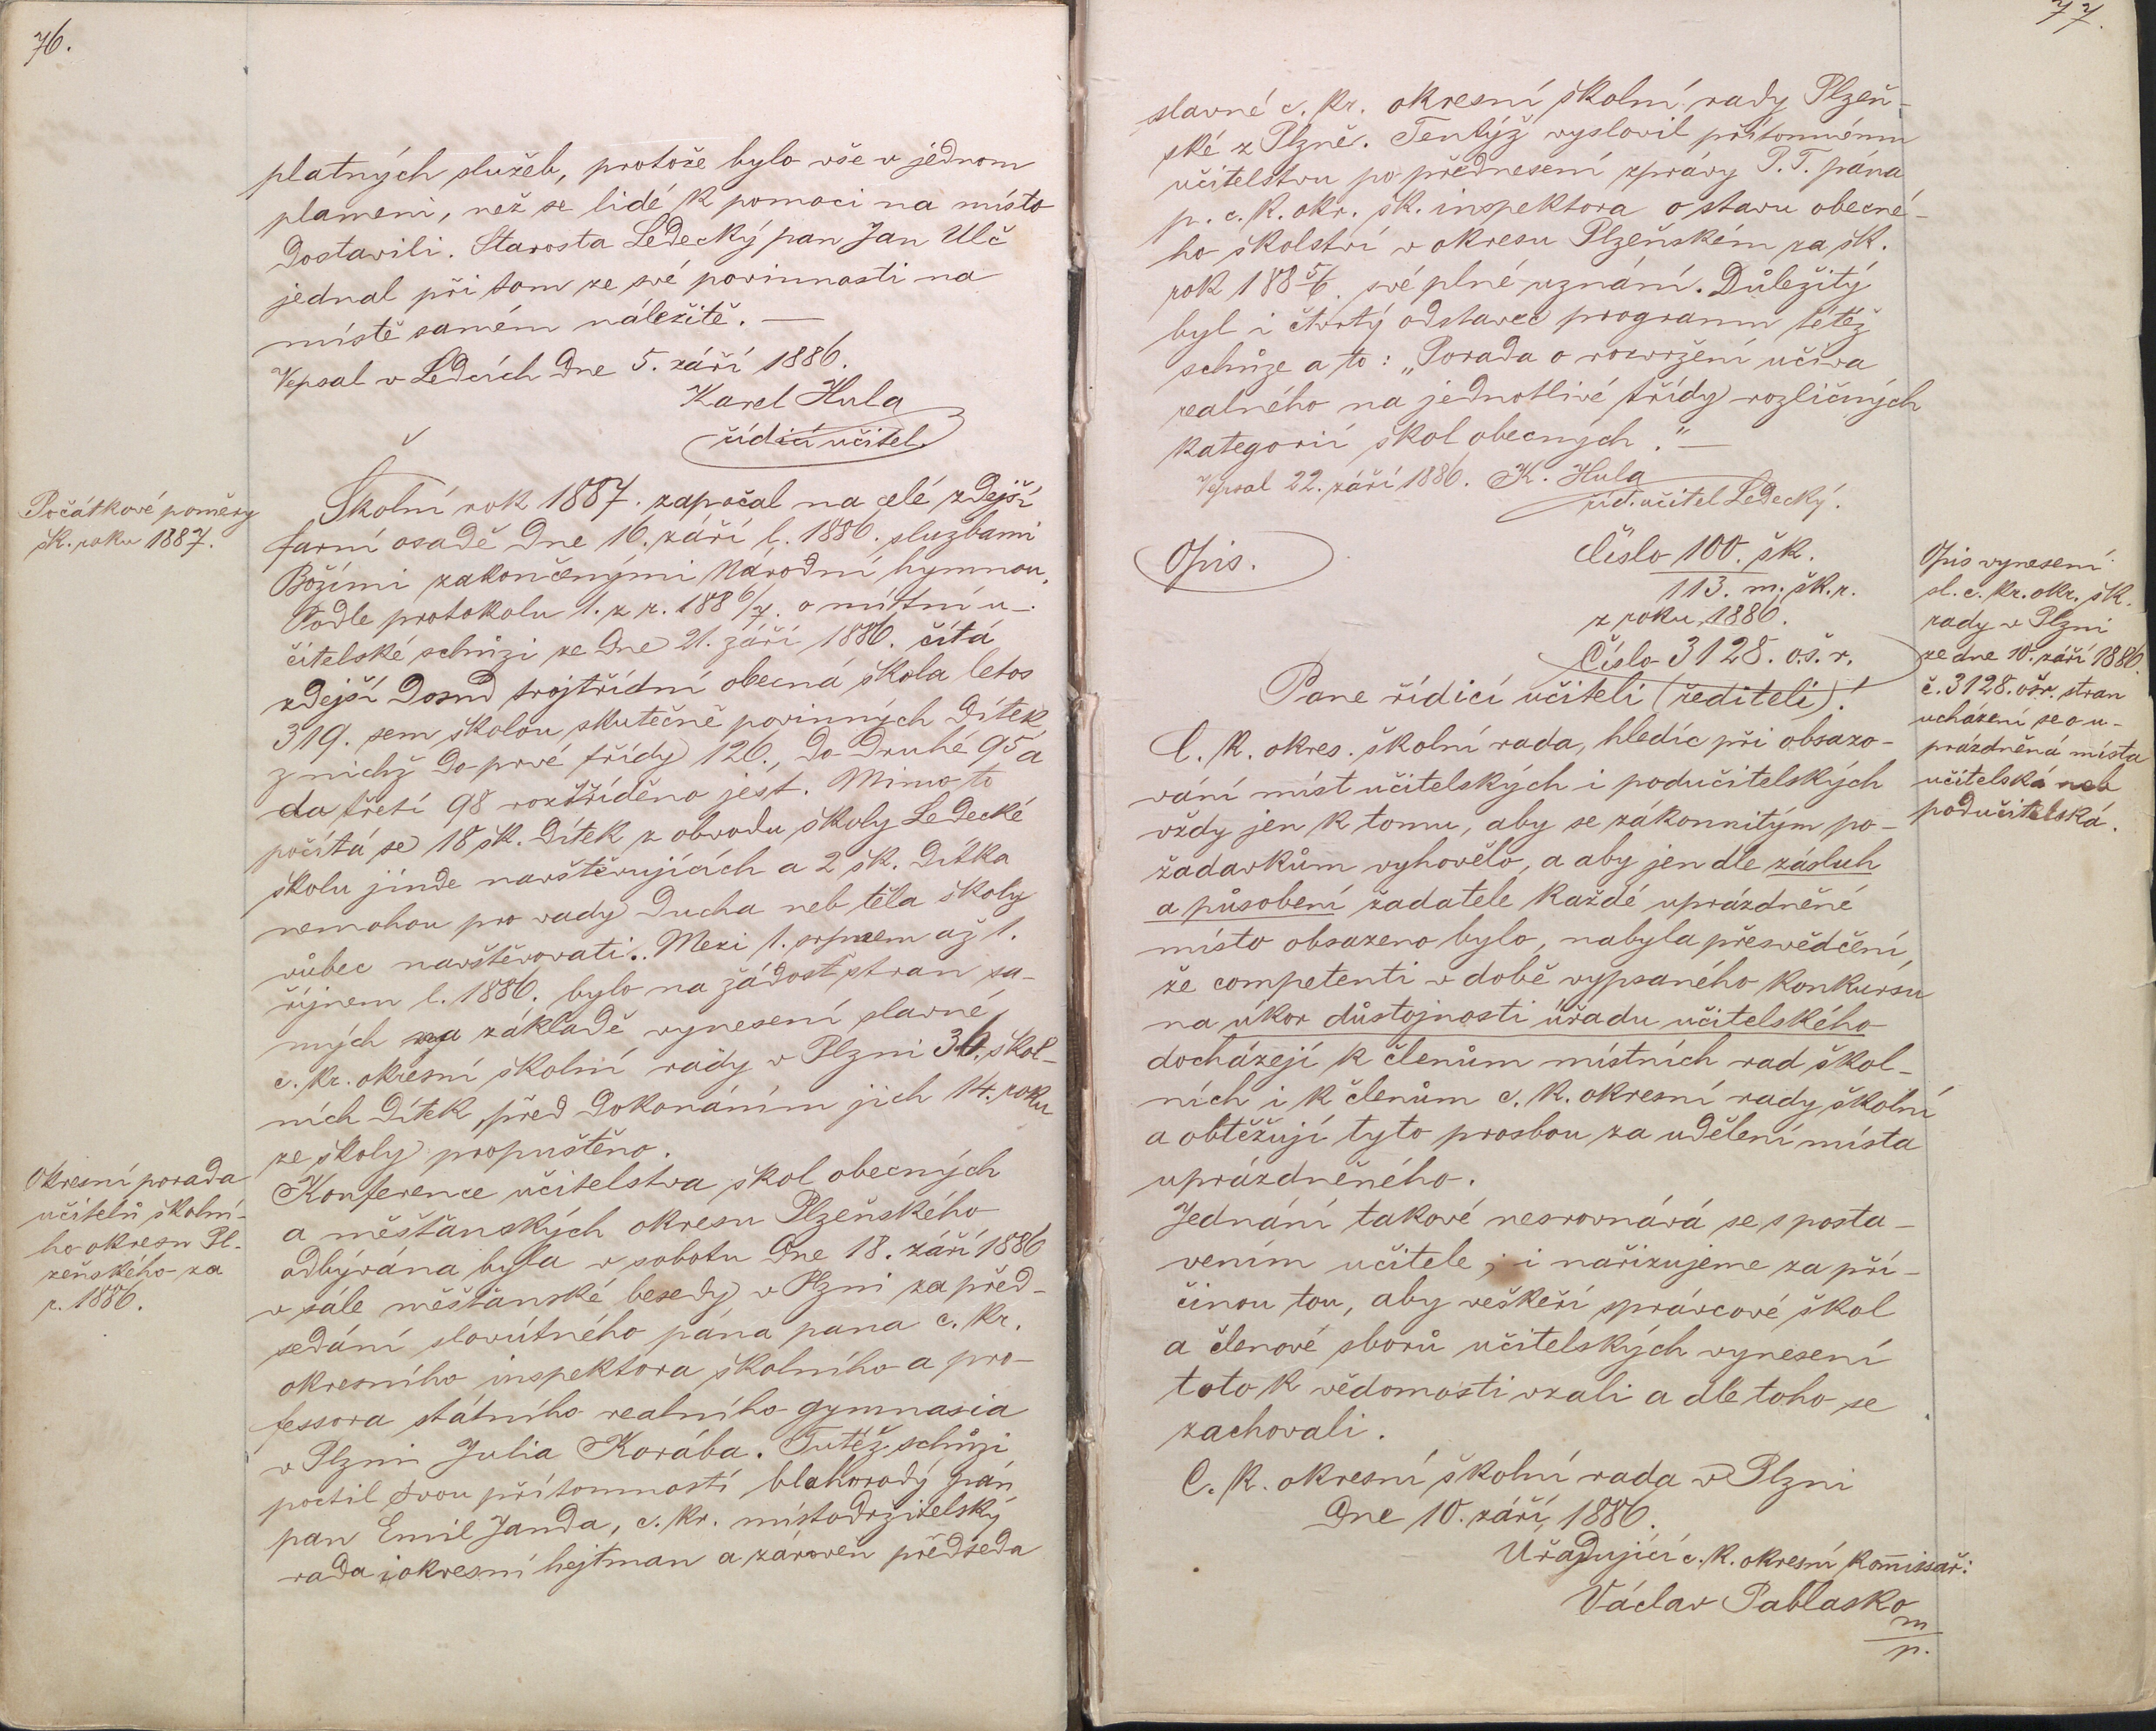 76.
platných služeb, protože bylo vše v jednom
plameni, než se lidé k pomoci na místo
dostavili. Starosta Ledecký pan Jan Ulč
jednal při tom ze své povinnosti na
místě samém náležitě. —
Vepsal v Ledcích dne 5. září 1886.
Karel Hula
řídící učitel.
Počátkové poměry
šk. roku 1887.
Školní rok 1887. započal na celé zdejší
farní osadě dne 16. září l. 1886. službami
Božími zakončenými Národní hymnou.
Podle protokolu 1. z r. 1886/7. o místní u-
čitelské schůzi ze dne 21. září 1886. čítá
zdejší dosud trojtřídní obecná škola letos
319. sem školou skutečně povinných dítek
z nichž do prvé třídy 126., do druhé 95 a
do třetí 98 roztříděno jest. Mimo to
počítá se 18 šk. dítek z obvodu školy Ledecké
školu jinde navštěvujících a 2 šk. dítka
nemohou pro vady ducha neb těla školy
vůbec navštěvovati. Mezi 1. srpnem až 1.
říjnem l. 1886. bylo na žádost stran sa-
mých na základě vynesení slavné
c. kr. okresní školní rady v Plzni 36. škol-
ních dítek, před dokonáním jich 14. roku
ze školy propuštěno.
Okresní porada
učitelů školní-
ho okresu Pl-
zeňského za
r. 1886.
Konference učitelstva škol obecných
a měšťanských okresu Plzeňského
odbývána byla v sobotu dne 18. září 1886
v sále měšťanské besedy v Plzni za před-
sedání slovútného pána pana c. kr.
okresního inspektora školního a pro-
fessora státního realního gymnasia
v Plzni Julia Korába. Tutéž schůzi
poctil svou přítomností blahorodý pán
pan Emil Janda, c. kr. místodržitelský
rada i okresní hejtman a zároveň předseda
77.
slavné c. kr. okresní školní rady Plzeň-
ské z Plzně. Tentýž vyslovil přítomnému
učitelstvu po přednesení zprávy P. T. pána
p. c. k. okr. šk. inspektora o stavu obecné-
ho školství v okresu Plzeňském za šk.
rok 1885/6. své plné uznání. Důležitý
byl i čtvrtý odstavec programu tétéž
schůze a to: „Porada o rozvržení učiva
realného na jednotlivé třídy rozličných
kategorií škol obecných." —
Vepsal 22. září 1886. K. Hula
říd. učitel Ledecký.
Opis.
Číslo 100. šk.
113. m. šk. r.
z roku 1886.
Číslo 3128. o. š. r.
Opis vynesení
sl. c. kr. okr. šk.
rady v Plzni
ze dne 10. září 1886.
č. 3128. ošr. stran
ucházení se o u-
prázdněná místa
učitelská neb
podučitelská.
Pane řídicí učiteli (řediteli)!
C. k. okres. školní rada, hledíc při obsazo-
vání míst učitelských i podučitelských
vždy jen k tomu, aby se zákonnitým po-
žadavkům vyhovělo, a aby jen dle zásluh
a působení žadatele každé uprázdněné
místo obsazeno bylo, nabyla přesvědčení,
že competenti v době vypsaného konkursu
na úkor důstojnosti úřadu učitelského
docházejí k členům místních rad škol-
ních i k členům c. k. okresní rady školní
a obtěžují tyto prosbou za udělení místa
uprázdněného.
Jednání takové nesrovnává se s posta-
vením učitele; i nařizujeme za pří-
činou tou, aby veškeří správcové škol
a členové sborů učitelských vynesení
toto k vědomosti vzali a dle toho se
zachovali.
C. k. okresní školní rada v Plzni
dne 10. září 1886.
Úřadující c. k. okresní komissař:
Václav Pablasko
m
p.